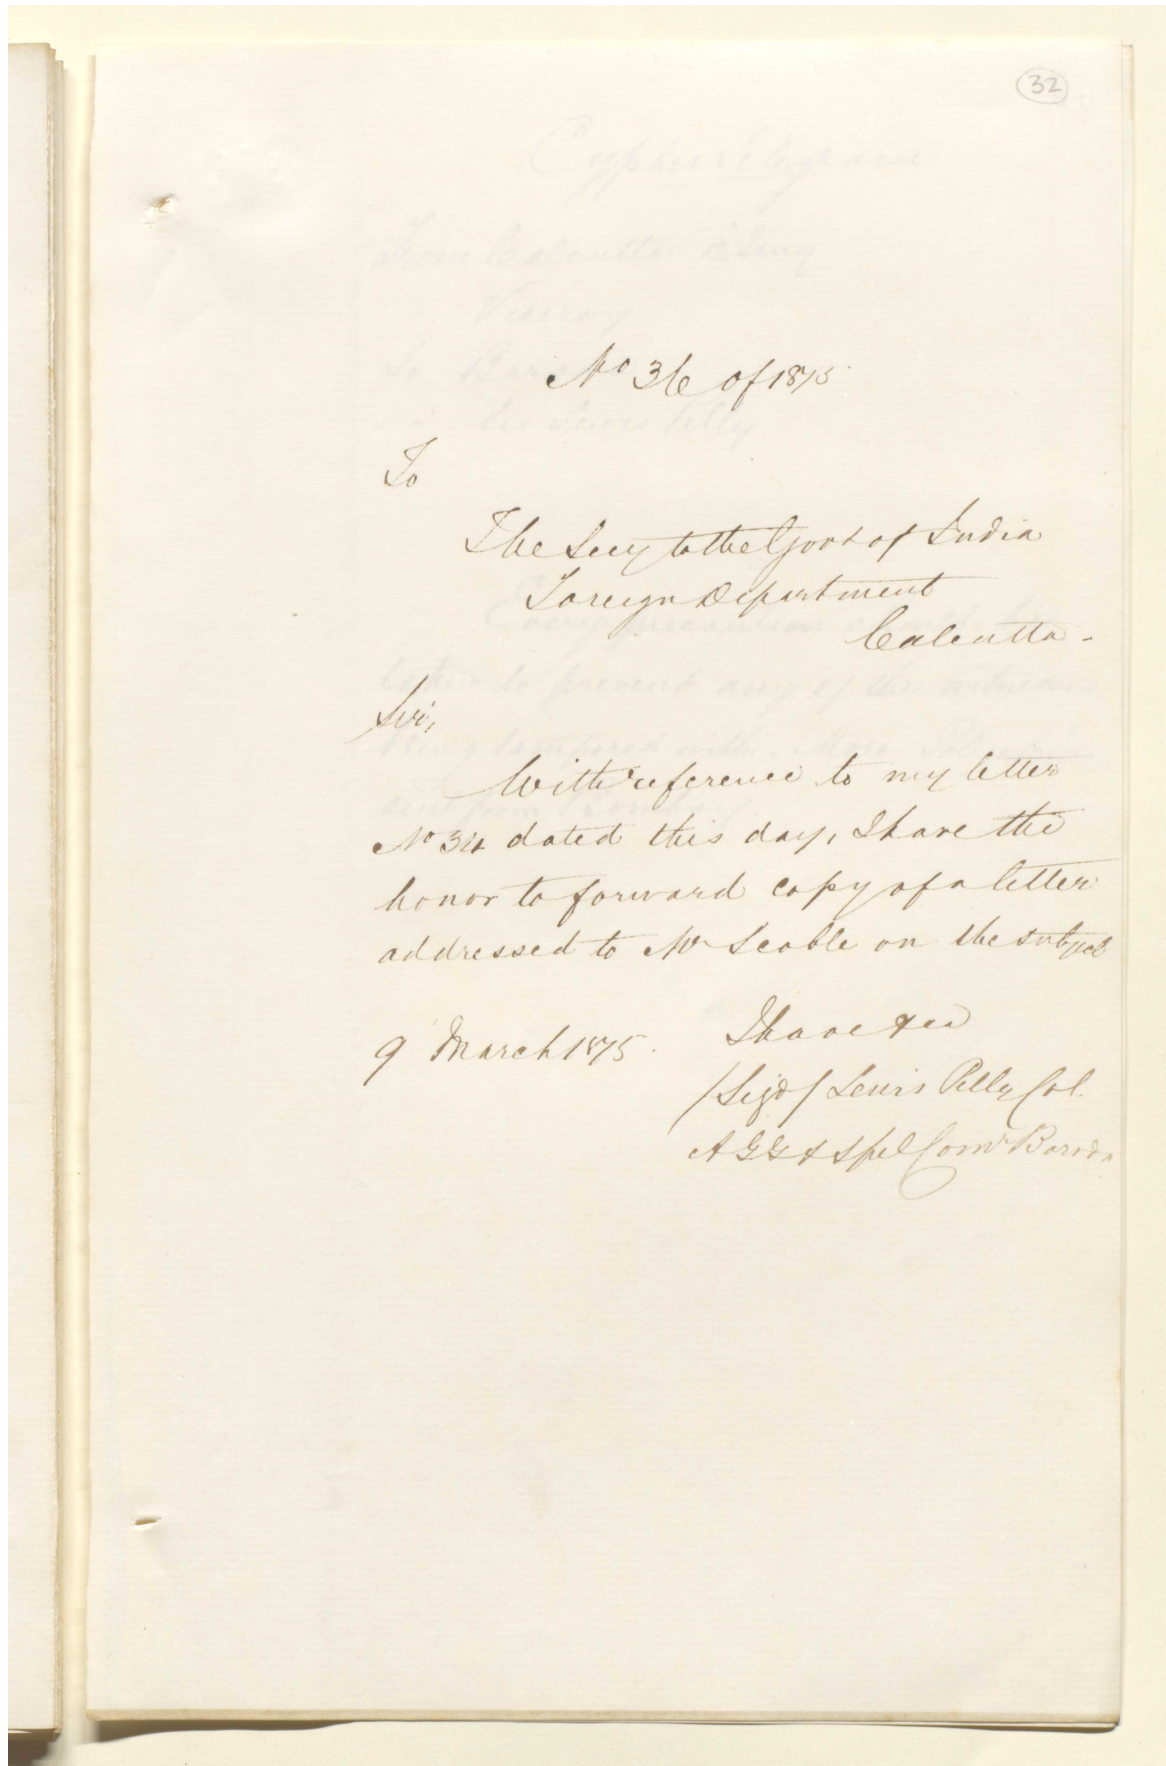 32
No 36 of 1875
To
The Secy to the Govt of India
Foreign Department
Calcutta -
Sir,
With reference to my letter
No 34 dated this day, I have the
honor to forward copy of a letter
addressed to Mr Scoble on the subject
9 March 1875. I have &ca
/Sigd/ Lewis Pelly Col.
A G G & Spel Comr Baroda